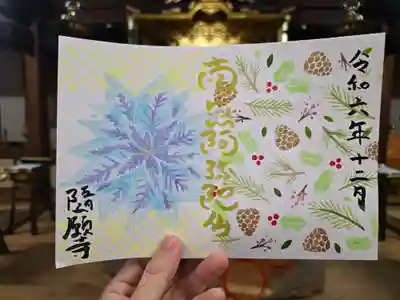 令和六年十二月
南無阿弥陀仏
隨願寺